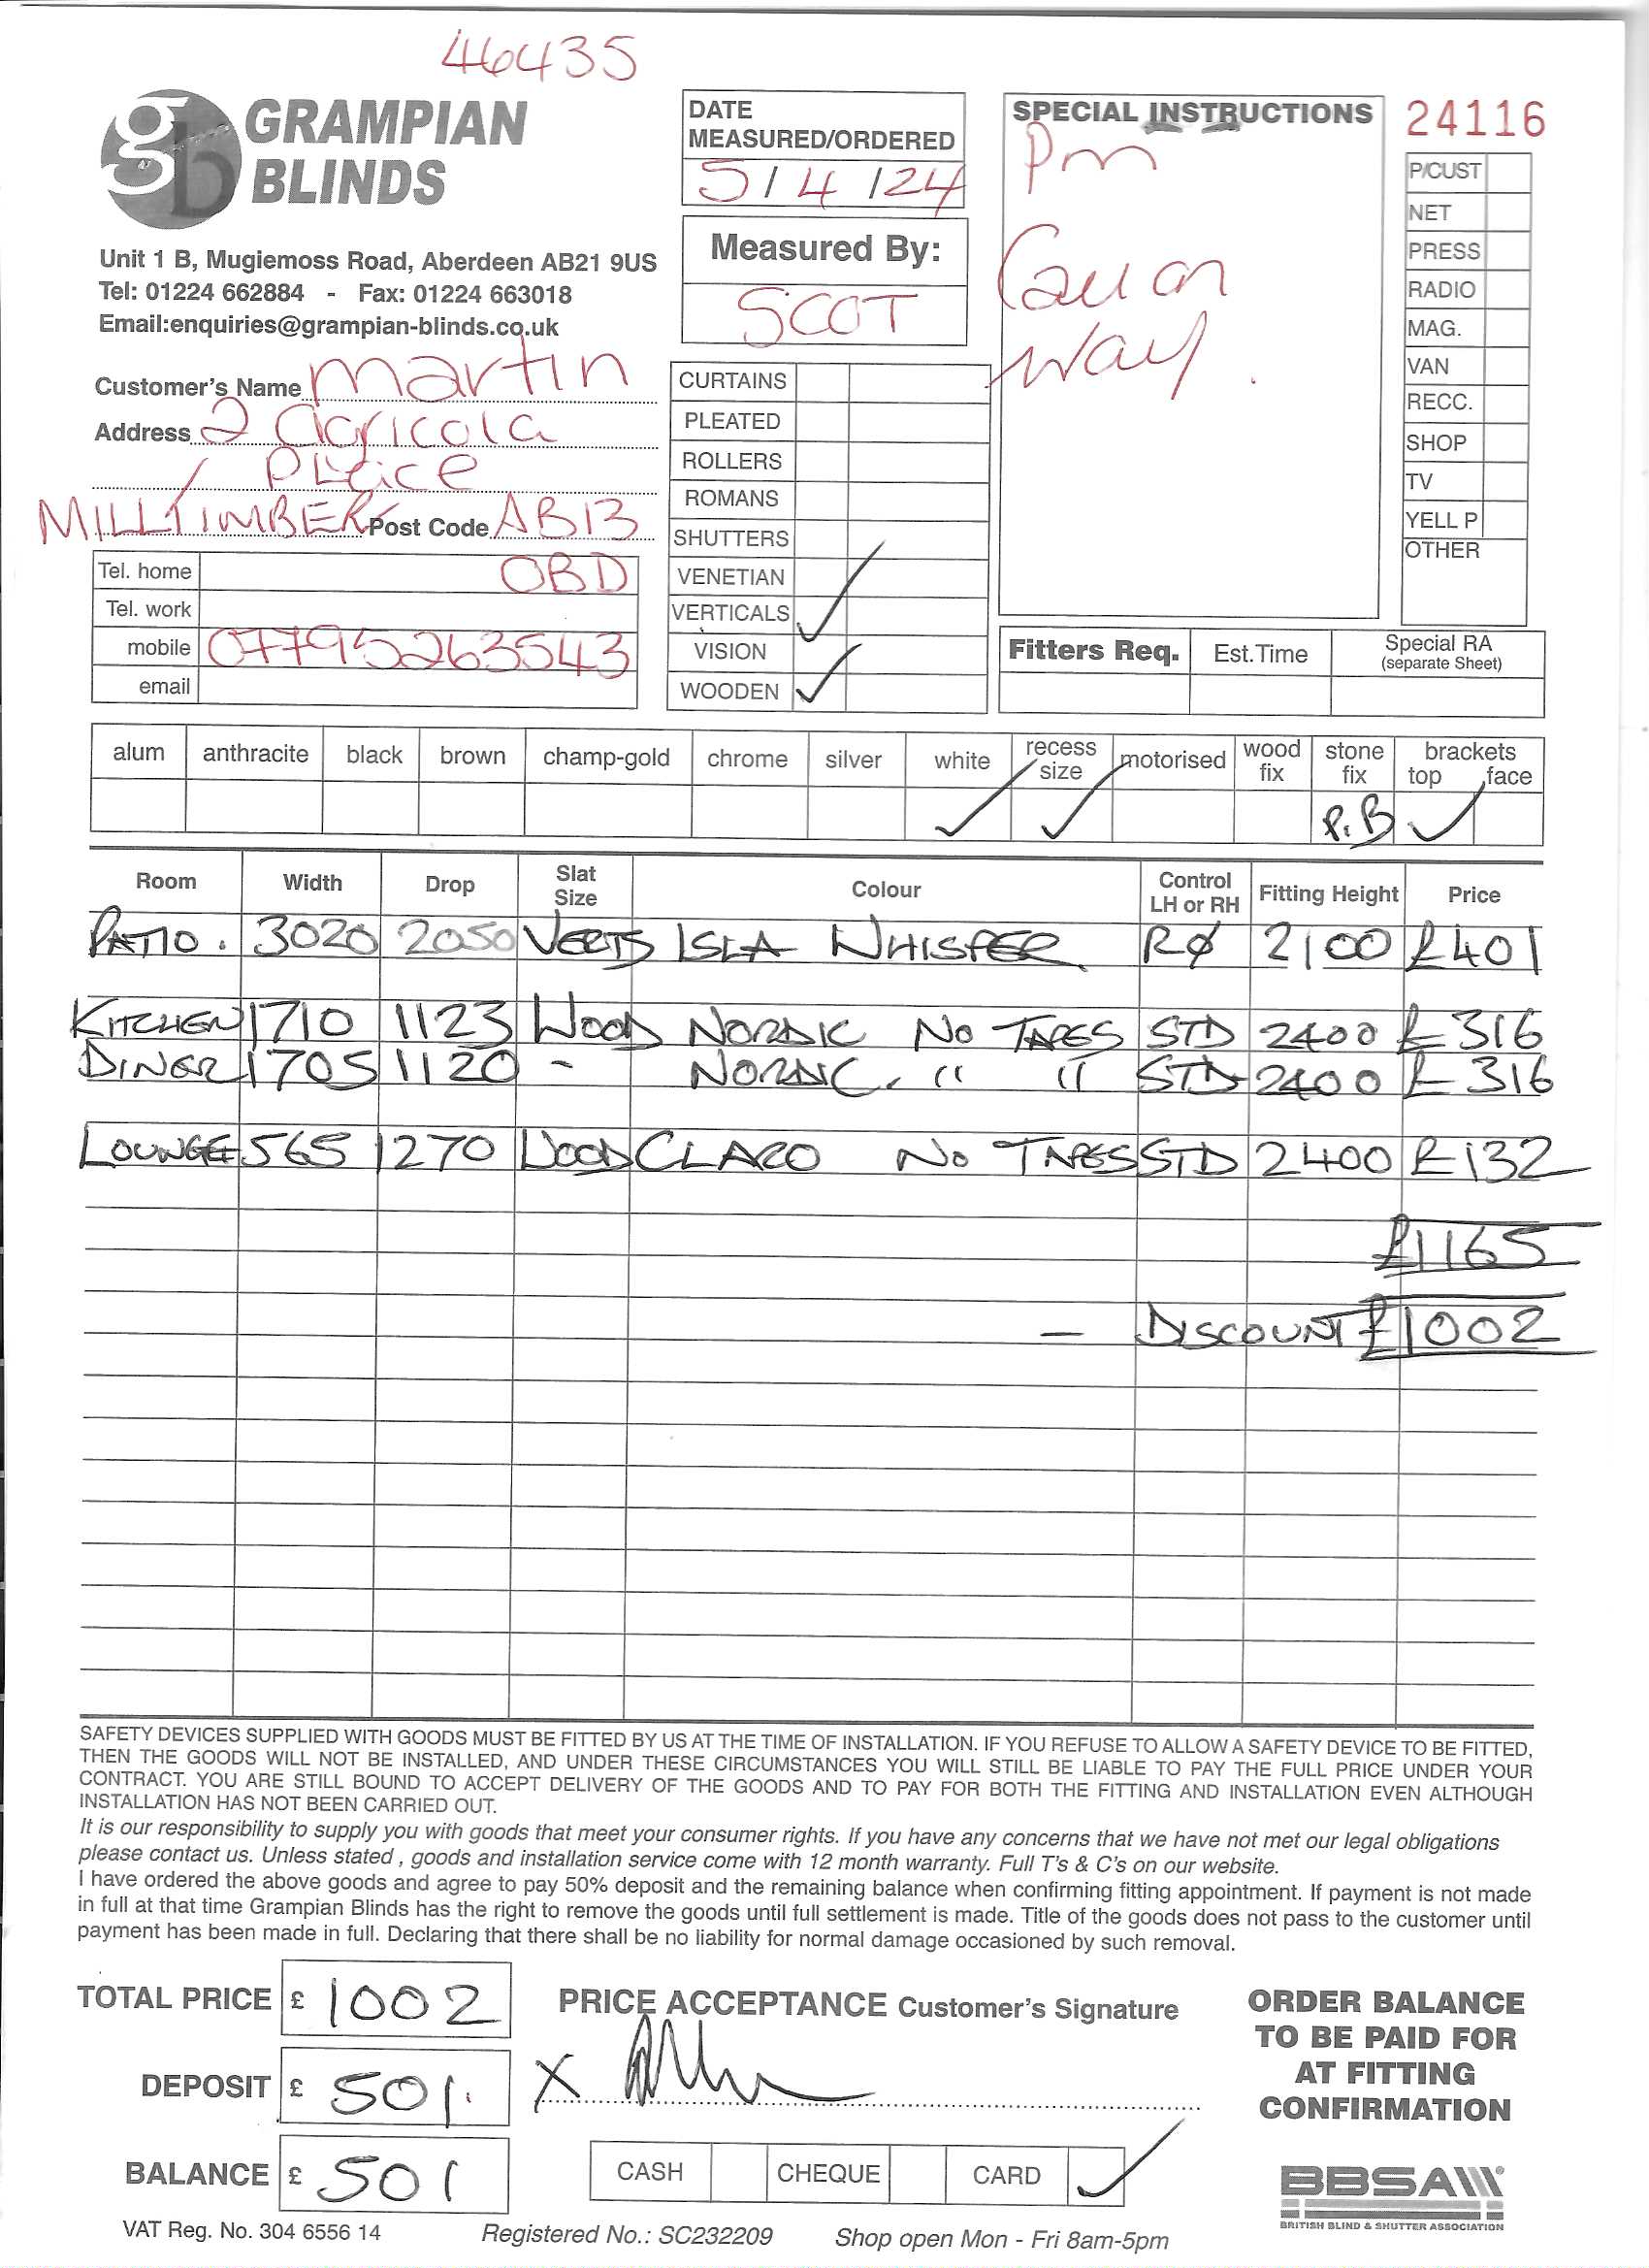 46435
GRAMPIAN
BLINDS
Unit 1 B, Mugiemoss Road, Aberdeen AB21 9US
Tel: 01224 662884 - Fax: 01224 663018
Email:enquiries@grampian-blinds.co.uk
Customer's Name Martin
Address 2 Agricola
Place
MILLTIMBER Post Code AB13
Tel. home 0BD
Tel. work
mobile 07795263543
email
DATE
MEASURED/ORDERED
5/4/24
Measured By:
SCOT
CURTAINS
PLEATED
ROLLERS
ROMANS
SHUTTERS
VENETIAN
VERTICALS ✓
VISION
WOODEN ✓
SPECIAL INSTRUCTIONS
Pm
Call on
way.
24116
P/CUST
NET
PRESS
RADIO
MAG.
VAN
RECC.
SHOP
TV
YELL P
OTHER
Fitters Req. Est.Time Special RA
(separate Sheet)
alum anthracite black brown champ-gold chrome silver white recess size motorised wood fix stone fix brackets top face
✓ ✓ P.B ✓
Room Width Drop Slat Size Colour Control LH or RH Fitting Height Price
PATIO. 3020 2050 VERTS ISLA WHISPER RØ 2100 £401
KITCHEN 1710 1123 WOOD NORDIC NO TAPES STD 2400 £316
DINER 1705 1120 - NORDIC. " " STD 2400 £316
LOUNGE 565 1270 WOOD CLARO NO TAPES STD 2400 £132
£1165
- DISCOUNT £1002
SAFETY DEVICES SUPPLIED WITH GOODS MUST BE FITTED BY US AT THE TIME OF INSTALLATION. IF YOU REFUSE TO ALLOW A SAFETY DEVICE TO BE FITTED,
THEN THE GOODS WILL NOT BE INSTALLED, AND UNDER THESE CIRCUMSTANCES YOU WILL STILL BE LIABLE TO PAY THE FULL PRICE UNDER YOUR
CONTRACT. YOU ARE STILL BOUND TO ACCEPT DELIVERY OF THE GOODS AND TO PAY FOR BOTH THE FITTING AND INSTALLATION EVEN ALTHOUGH
INSTALLATION HAS NOT BEEN CARRIED OUT.
It is our responsibility to supply you with goods that meet your consumer rights. If you have any concerns that we have not met our legal obligations
please contact us. Unless stated , goods and installation service come with 12 month warranty. Full T's & C's on our website.
I have ordered the above goods and agree to pay 50% deposit and the remaining balance when confirming fitting appointment. If payment is not made
in full at that time Grampian Blinds has the right to remove the goods until full settlement is made. Title of the goods does not pass to the customer until
payment has been made in full. Declaring that there shall be no liability for normal damage occasioned by such removal.
TOTAL PRICE £ 1002
DEPOSIT £ 501.
BALANCE £ 501
PRICE ACCEPTANCE Customer's Signature
X
CASH CHEQUE CARD ✓
ORDER BALANCE
TO BE PAID FOR
AT FITTING
CONFIRMATION
BBSA
BRITISH BLIND & SHUTTER ASSOCIATION
VAT Reg. No. 304 6556 14 Registered No.: SC232209 Shop open Mon - Fri 8am-5pm